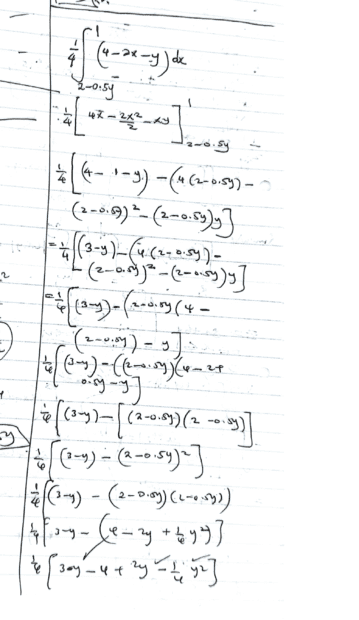 1/4 ∫ 1 (4-2x-y) dx
2-0.5y
1/4 [4x - 2x²/2 - xy] 1
2-0.5y
1/4 [(4-1-y) - (4(2-0.5y) -
(2-0.5y)² - (2-0.5y)y]
= 1/4 [(3-y) - (4(2-0.5y) -
(2-0.5y)² - (2-0.5y)y]
= 1/4 [(3-y) - (2-0.5y(4 -
(2-0.5y) - y]
1/4 [(3-y) - ((2-0.5y)(4-2+
0.5y-y]
1/4 [(3-y) - [(2-0.5y)(2-0.5y)]
1/4 [(3-y) - (2-0.5y)²]
1/4 [(3-y) - (2-0.5y)(2-0.5y))
1/4 [3-y - (4-2y+1/4y²)]
1/4 [3-y-4+2y-1/4y²]